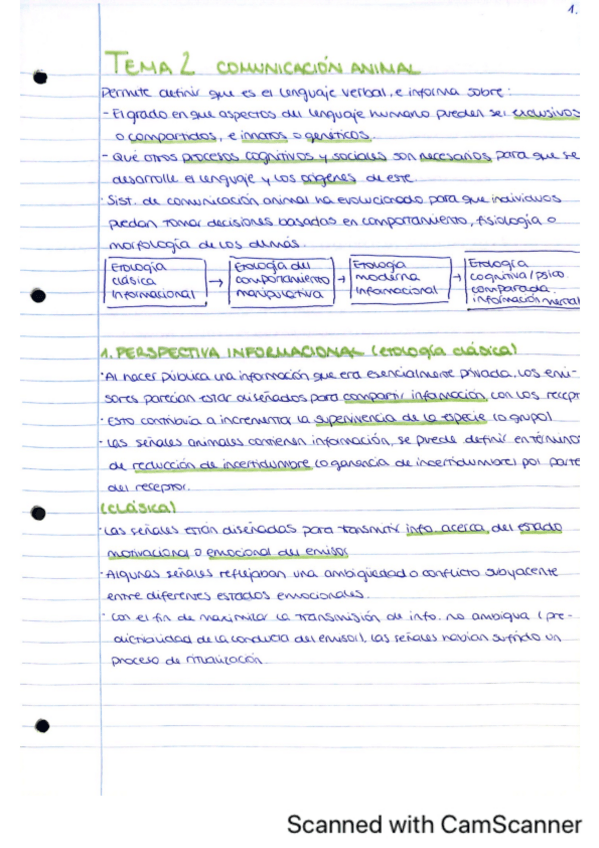 1.
TEMA 2 COMUNICACIÓN ANIMAL
Permite definir que es el lenguaje verbal, e informa sobre:
- El grado en que aspectos del lenguaje humano pueden ser exclusivos
o compartidos, e innatos o genéticos.
- Qué otros procesos cognitivos y sociales son necesarios para que se
desarrolle el lenguaje y los orígenes de este.
· Sist. de comunicación animal ha evolucionado para que individuos
puedan tomar decisiones basadas en comportamiento, fisiología o
morfología de los demás.
Etología clásica informacional → Etología del comportamiento manipulativa → Etología moderna informacional → Etología cognitiva/psico. comparada. información mental
1. PERSPECTIVA INFORMACIONAL (etología clásica)
· Al hacer pública una información que era esencialmente privada, los emi-
sores parecían estar diseñados para compartir información, con los recept
· Esto contribuía a incrementar la supervivencia de la especie (o grupo)
· Las señales animales contienen información, se puede definir en término
de reducción de incertidumbre (o ganancia de incertidumbre) por parte
del receptor.
(CLÁSICA)
· Las señales están diseñadas para transmitir info. acerca del estado
motivacional o emocional del emisor
· Algunas señales reflejaban una ambigüedad o conflicto subyacente
entre diferentes estados emocionales.
· Con el fin de maximizar la transmisión de info. no ambigua (pre-
dictibilidad de la conducta del emisor), las señales habían sufrido un
proceso de ritualización.
Scanned with CamScanner